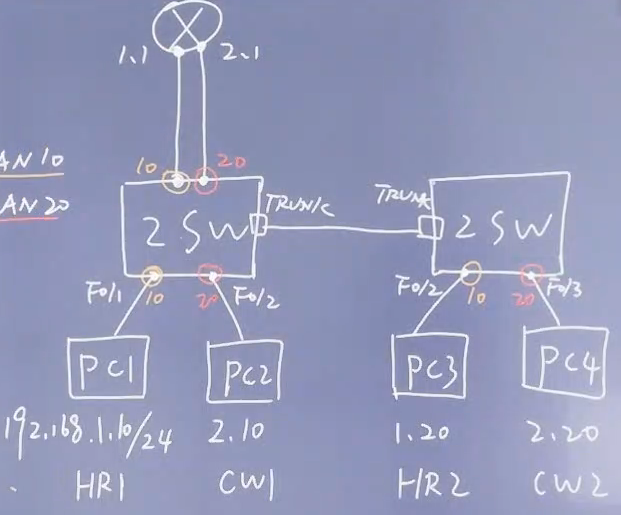 1.1 2.1
10 20
AN10
AN20
2 SW TRUNK TRUNK 2 SW
F0/1 10 20 F0/2 F0/2 10 20 F0/3
PC1 PC2 PC3 PC4
192.168.1.10/24 2.10 1.20 2.20
HR1 CW1 HR2 CW2